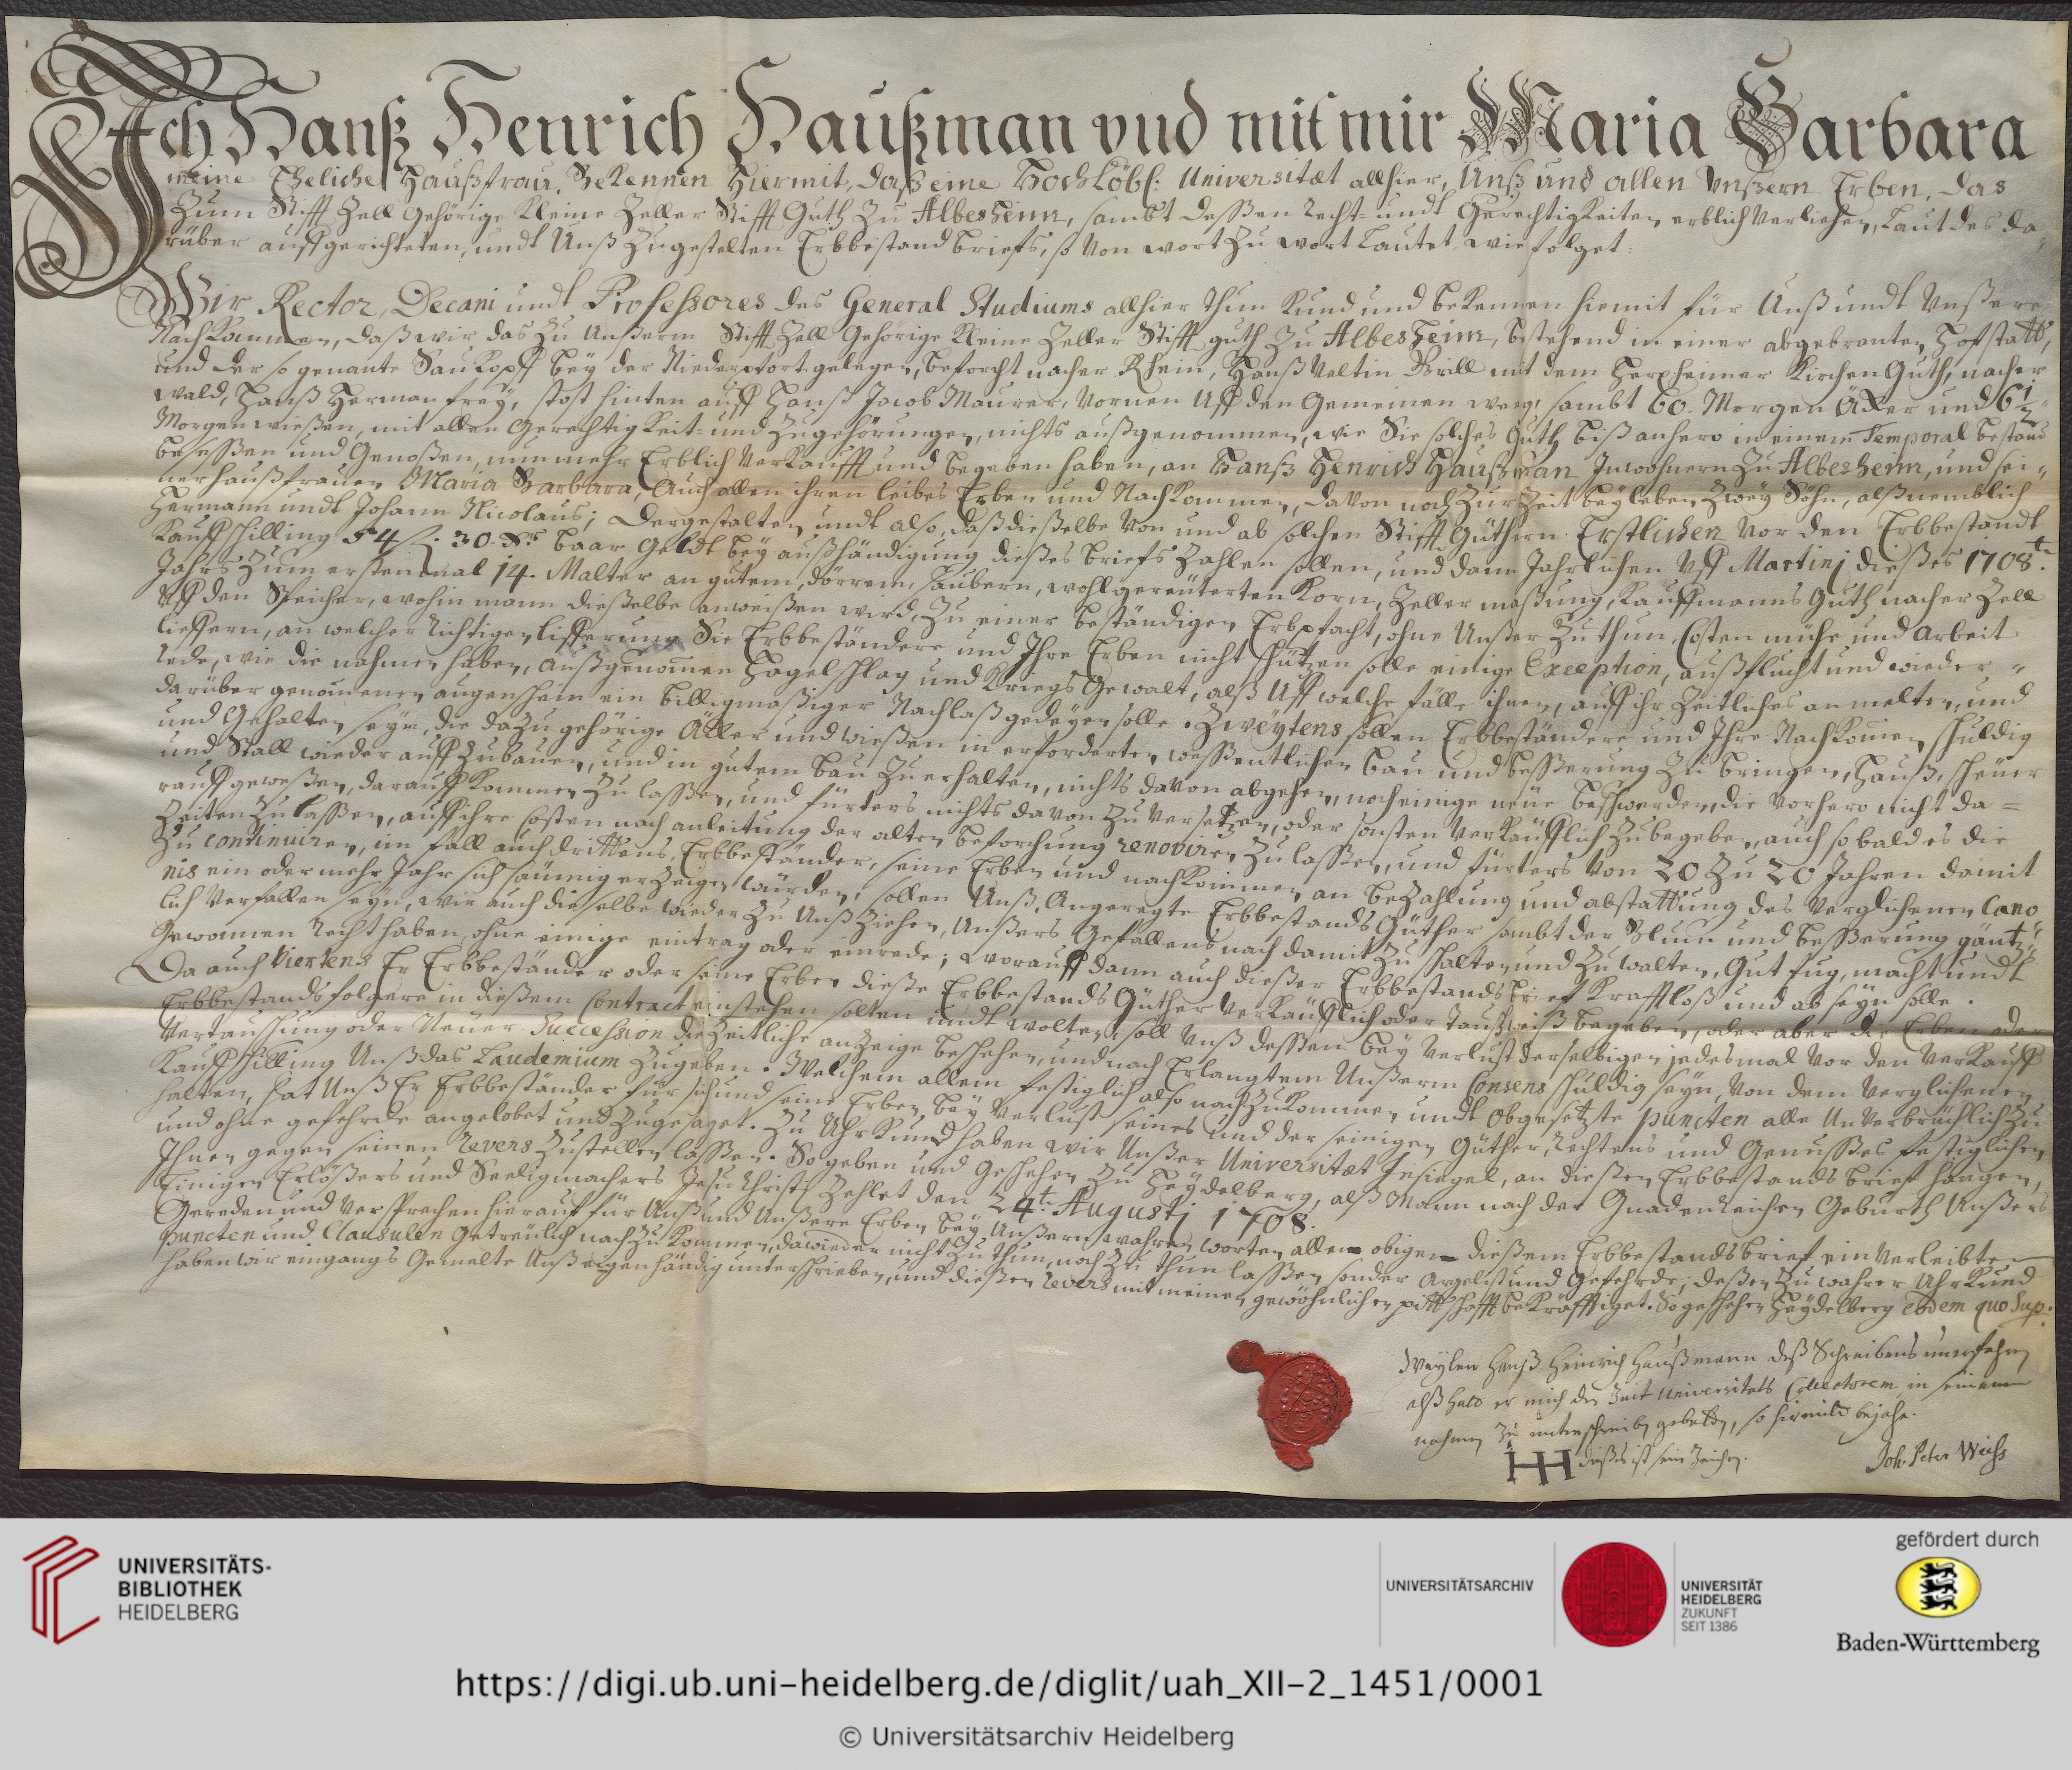 Ich Hanß Henrich Haußman und mit mir Maria Barbara
meine Eheliche Haußfrau, Bekennen Hiermit, daß eine HochLöbl: Universitæt allhier, Unß und allen Unßern Erben, das
Zum Stifft Zell Gehörige Kleine Zeller Stifft Guth Zu Albesheim, sambt deßen Recht- undt Gerechtigkeiten erblich Verliehen, Laut des da,
rüber auffgerichteten, undt Unß Zugestelten Erbbestandbriefs, so Von wort Zu wort Lautet wie folget:
Wir Rector, Decani undt Professores des General Studiums allhier thun Kund und beKennen hiemit für Unß undt Unßere
NachKommen, daß wir das Zu Unßerm Stifft Zell Gehörige Kleine Zeller Stifft guth Zu Albesheim, bestehend in einer abgebranten Hofstatt,
und der so genante SauKopff bey der Niederpfort gelegen, beforcht nacher Rhein, Hanß Veltin Brill mit dem Herxheimer Kirchen Guth, nacher
Wald, Hanß Herman frey, stost hinten auff Hanß Jacob Maurer, Vornen Uff den Gemeinen weeg, sambt 60. Morgen Äcker und 6½
Morgen wießen, mit allen Gerechtigkeit- und Zugehörungen, nichts außgenommen, wie Sie solches Guth biß anhero in einem Temporal bestand
beseßen und Genoßen, nunmehr Erblich Verkaufft und begeben haben, an Hanß Henrich Haußman Inwohnern Zu Albesheim, und sei-
ner haußfrauen Maria Barbara, Auch allen ihren leibes Erben und NachKommen, davon noch Zur Zeit bey leben Zwey Söhn, alß nemblich
Hermann undt Johann Nicolaus; Dergestalten undt also, daß dießelbe Von und ab solchen Stifft Güthern Erstlichen Vor den Erbbestandt
Kauffschilling 54 fl. 30 Xr. baar Geldt bey außhändigung dießes briefs Zahlen sollen, und dann Jahrlichen Uff Martinj dießes 1708t.
Jahrs Zum erstenmal 14. Malter an gutem, dörrem, saubern, wohlgereüterten Korn, Zeller maßung, Kauffmanns Guth nacher Zell
Uff den Speicher, wohin mann dießelbe anweißen wird, Zu einer beständigen Erbpfacht, ohne Unßer Zuthun, Costen mühe und arbeit
lieffern, an welcher richtigen lifferung Sie Erbbeständere und Ihre Erben nicht schützen solle einige Exception, außflucht und wieder-
rede, wie die nahmen haben, außgenommen Hagelschlag und Kriegs Gewalt, alß Uff welche fälle ihnen, auff ihr Zeitliches anmelten, und
darüber genommenen augenschein ein billigmäßiger Nachlaß gedeyen solle. Zweytens sollen Erbbeständere und Ihre NachKommen schuldig
und Gehalten seyn, die daZu gehörige Äcker und wießen in erforderten weßentlichen bau und beßerung Zu bringen, Hauß, scheuer
und Stall wieder auffZubauen, und in gutem bau Zu erhalten, nichts davon abgehen, noch einige neüe beschwerden, die Vorhero nicht da=
rauff geweßen, darauff Kommen Zu laßen, und fürters nichts davon Zu Versetzen, oder sonsten Verkäufflich Zubegeben, auch sobald es die
Zeiten Zulaßen, auff ihre Costen nach anleitung der alten beforchung renoviren Zu laßen, und fürters Von 20 Zu 20 Jahren damit
Zu continuiren, im fall auch drittens, Erbbeständer, seine Erben und nachkommen an beZahlung und abstattung des Verglichenen Cano
nis ein oder mehr Jahr sich säumig erZeigen würden, sollen Unß, Angeregte Erbbestands Güther sambt der Blum und beßerung gäntz-
lich Verfallen seyn, wir auch dieselbe wieder Zu Unß Ziehen, Unßers Gefallens nach damit Zu schalten und Zu walten, Gut fug, macht undt
Gewonnen recht haben, ohne einige eintrag oder einrede; worauff dann auch dießer Erbbestandsbrief Krafftloß und ab seyn solle.
Da auch Viertens Er Erbbeständer oder seine Erben dieße Erbbestands Güther Verkäufflich oder Tauschweiß begeben, oder aber die Erben oder
Erbbestandsfolgere in dießem Contract einstehen solten undt wolten, soll Unß deßen bey Verlust derselbigen jedesmal Vor den Verkauff
Vertauschung oder Neuer Succession die Zeitliche anZeige beschehen, und nach Erlangtem Unßerm Consens schuldig seyn, Von dem Verglichenen
Kauffschilling Unß das Laudemium Zugeben. Welchem allem festiglich also nachZukommen undt obgesetzte puncten alle UnVerbrüchlich Zu
halten, hat Unß Er Erbbeständer für sich und seine Erben, bey Verlust seines und der seinigen Güther, Rechtens und Genußes festiglichen
und ohne gefehrde angelobet und Zugesaget. Zu UhrKund haben wir Unßer Universitæt Insiegel, an dießen Erbbestandsbrief hangen,
Ihnen gegen seinen Revers Zustellen laßen. So geben und Geschehen Zu Heydelberg, alß Mann nach der Gnadenreichen Geburth Unßers
Einigen Erlößers und Seeligmachers Jesu Christi Zehlet den 24t. Augustj 1708.
Gereden und Versprechen hierauf für Unß und Unßere Erben bey Unßern wahren worten allen obigen dießem Erbbestandsbrief einverleibten
puncten und Clausulen getreülich nachZukommen, dawieder nicht Zuthun, noch Zu thun laßen, sonder Argelist und Gefehrde; deßen Zu wahrer UhrKund
haben wir eingangs Gemelte Unß eigenhändig unterschrieben, und dießen Revers mit meinen gewöhnlichen pittschafft bekräfftiget. So geschehen Heydelberg eodem quo Sup:
Weylen Hanß Heinrich Haußmann deß Schreibens unerfahren
alß hatt er mich der Zeit Universitats Collectorem in seinem
nahmen Zu unterschreiben gebetten, so hiemitt bejahe.
HH dießes ist sein Zeichen.
Joh. Peter Weiß
UNIVERSITÄTS-
BIBLIOTHEK
HEIDELBERG
UNIVERSITÄTSARCHIV
UNIVERSITÄT
HEIDELBERG
ZUKUNFT
SEIT 1386
gefördert durch
Baden-Württemberg
https://digi.ub.uni-heidelberg.de/diglit/uah_XII-2_1451/0001
© Universitätsarchiv Heidelberg